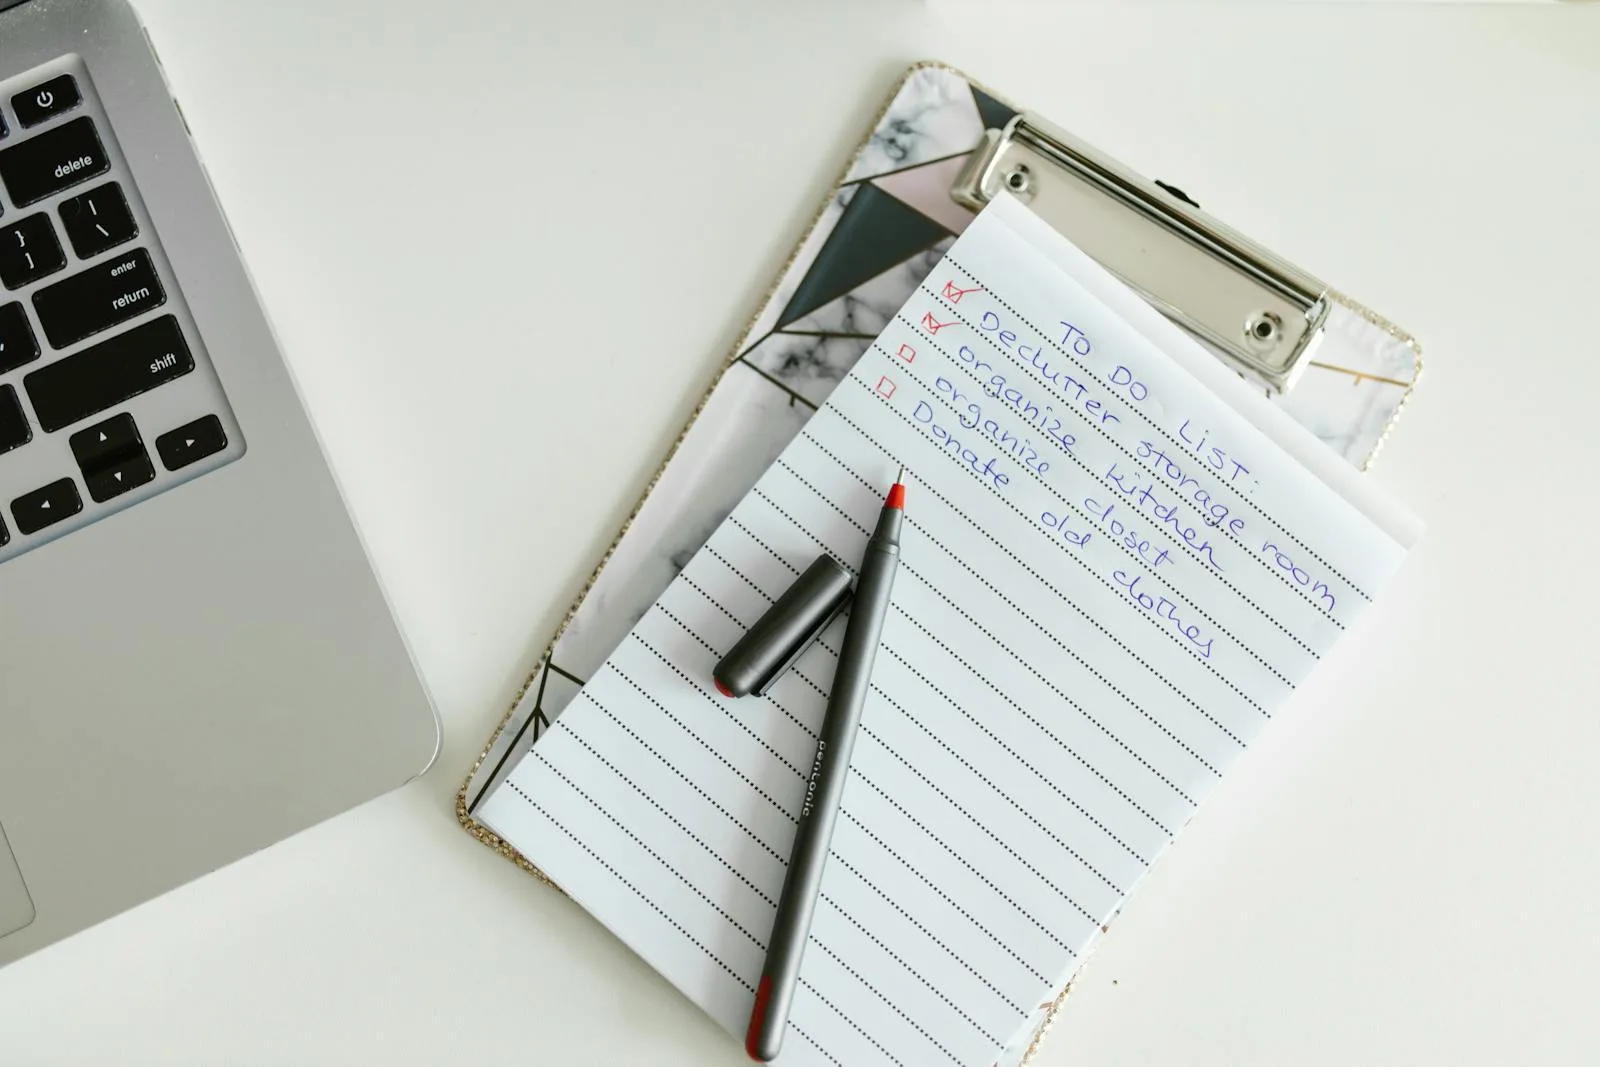 delete
|
\
}
]
enter
return
shift
TO DO LIST:
Declutter storage room
organize kitchen
organize closet
Donate old clothes
pentonic